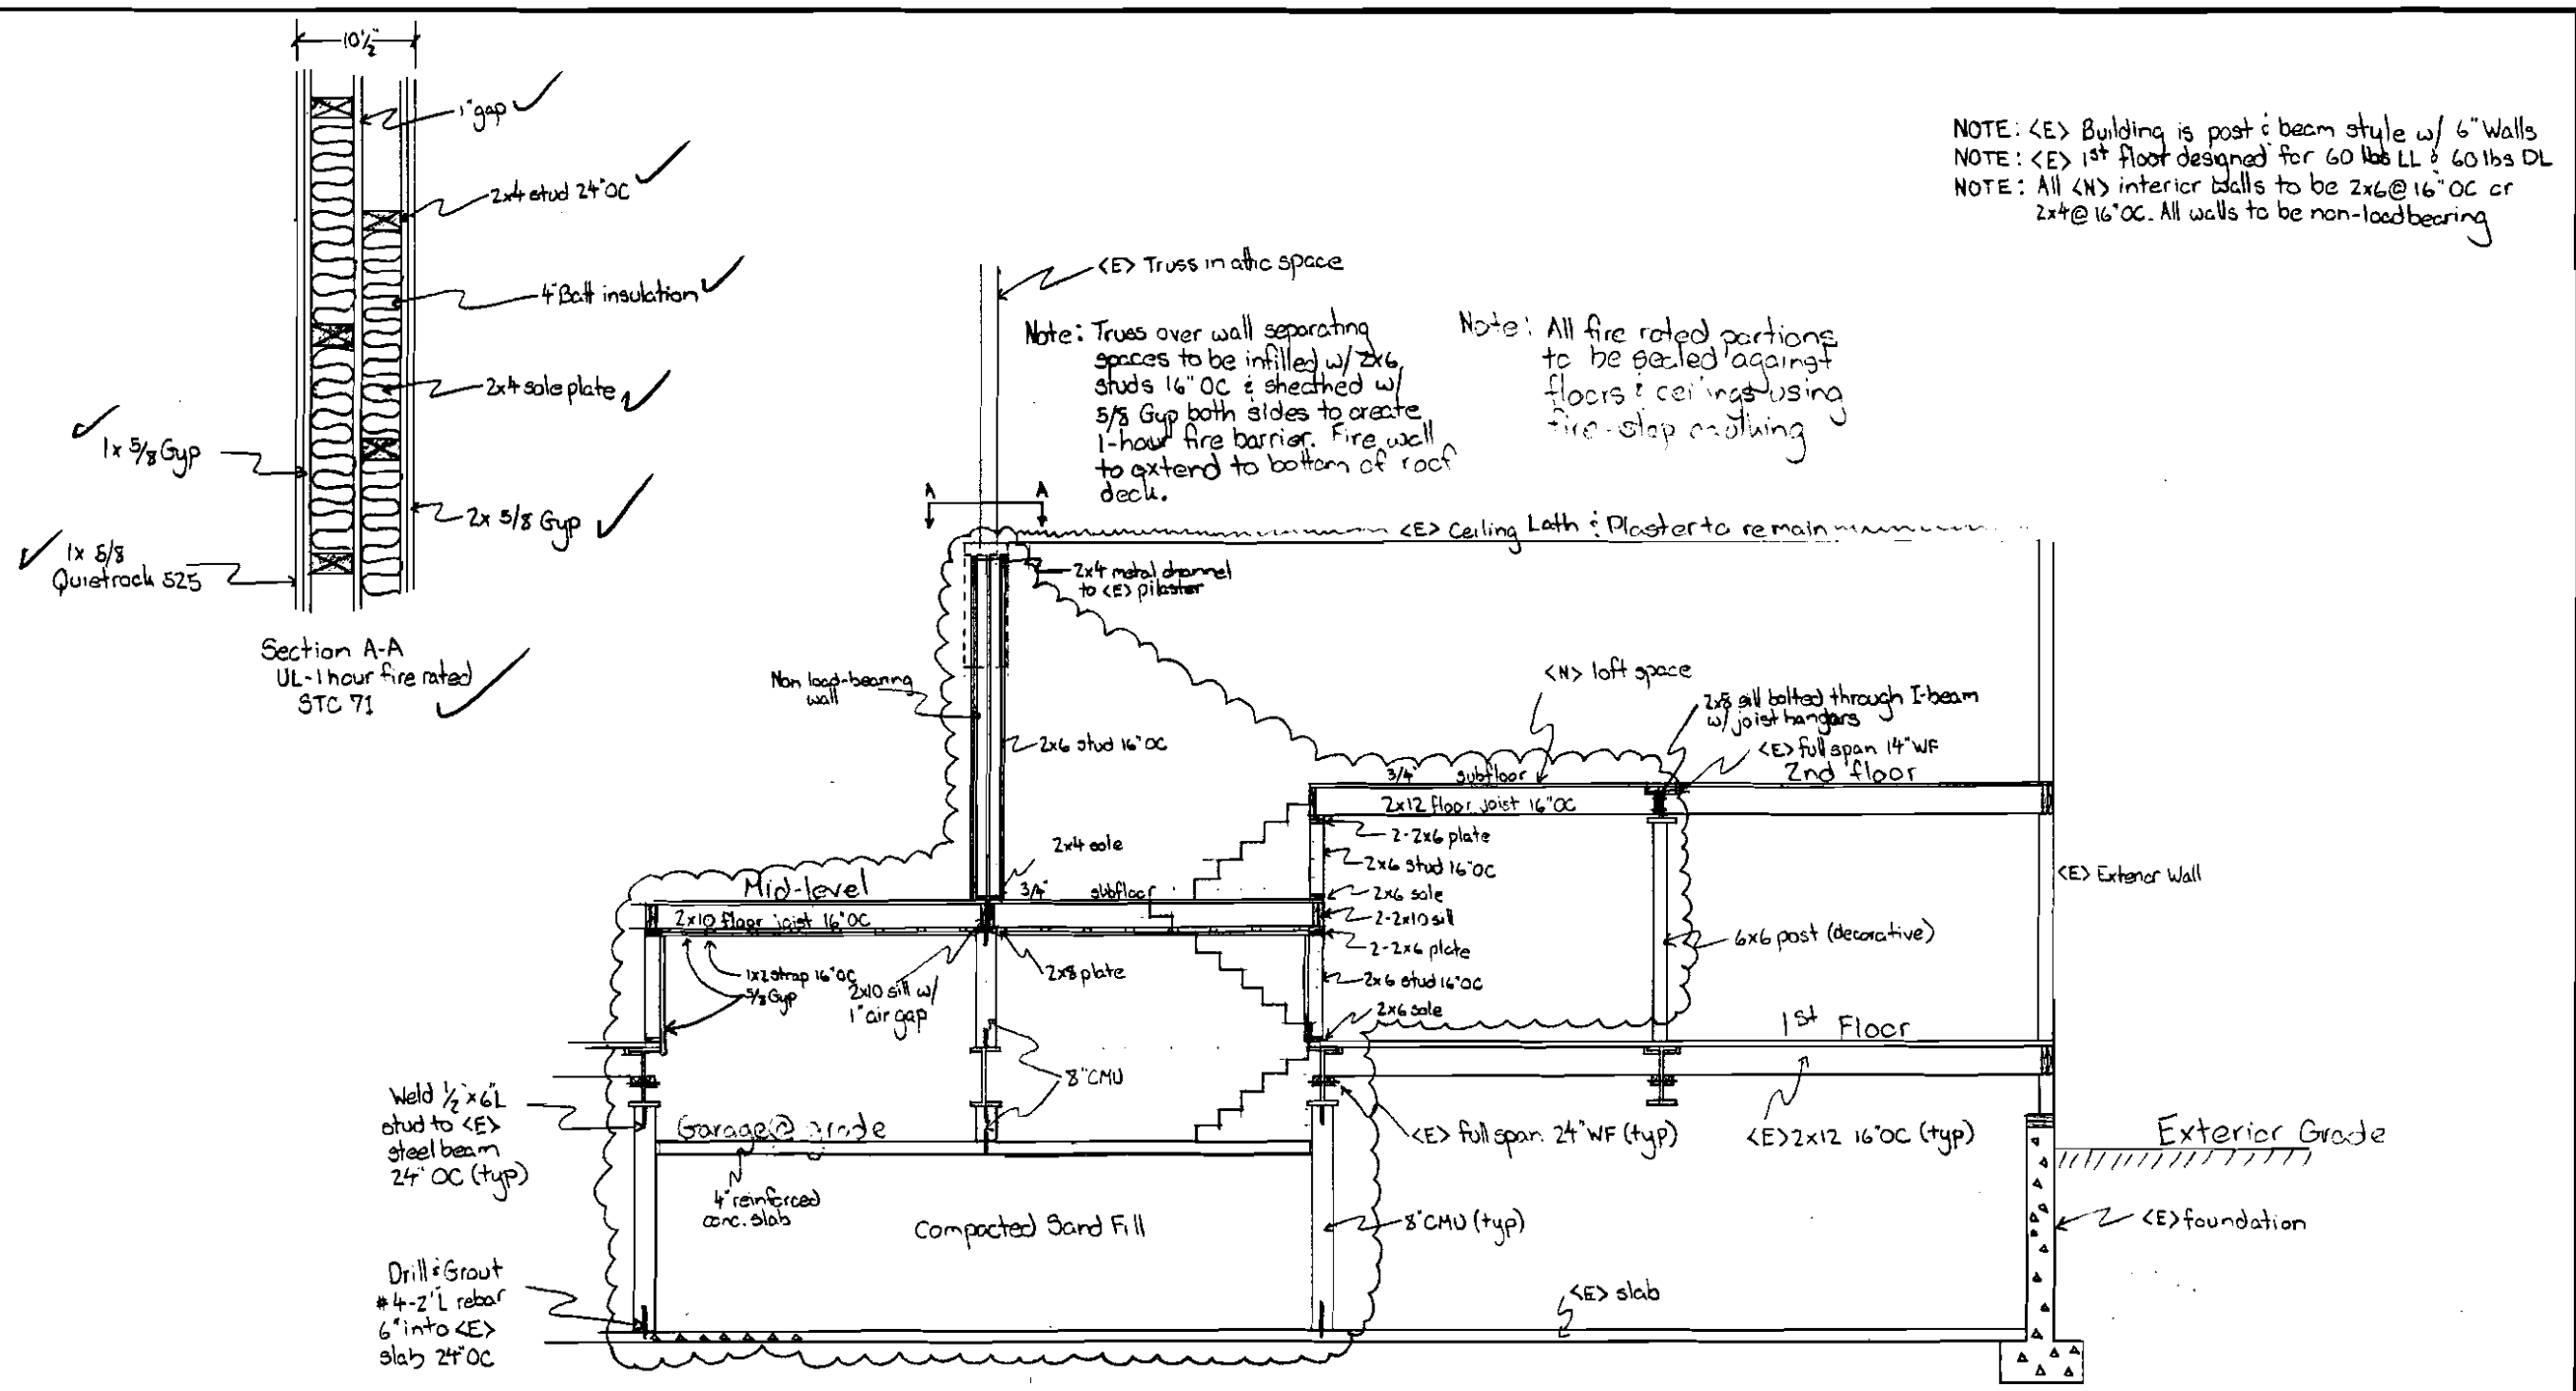 10½"
1" gap
2x4 stud 24" OC
4" Batt insulation
2x4 sole plate
1x 5/8 Gyp
2x 5/8 Gyp
1x 5/8
Quietrock 525
Section A-A
UL-1 hour fire rated
STC 71
NOTE: <E> Building is post & beam style w/ 6" Walls
NOTE: <E> 1st floor designed for 60 lbs LL & 60 lbs DL
NOTE: All <N> interior walls to be 2x6@16" OC or
2x4@16" OC. All walls to be non-loadbearing
<E> Truss in attic space
Note: Truss over wall separating
spaces to be infilled w/ 2x6
studs 16" OC & sheathed w/
5/8 Gyp both sides to create
1-hour fire barrier. Fire wall
to extend to bottom of roof
deck.
Note: All fire rated partions
to be sealed against
floors & ceilings using
fire-stop caulking
A A
<E> Ceiling Lath & Plaster to remain
2x4 metal channel
to <E> pilaster
Non load-bearing
wall
2x6 stud 16" OC
<N> loft space
2x8 sill bolted through I-beam
w/ joist hangars
<E> full span 14" WF
3/4" subfloor
2nd floor
2x12 floor joist 16" OC
2-2x6 plate
2x6 stud 16" OC
2x6 sole
2-2x10 sill
2-2x6 plate
2x6 stud 16" OC
2x6 sole
2x4 sole
Mid-level
3/4" subfloor
2x10 floor joist 16" OC
<E> Exterior Wall
6x6 post (decorative)
1x2 strap 16" OC
5/8 Gyp
2x10 sill w/
1" air gap
2x8 plate
1st Floor
8" CMU
Weld ½"x6"L
stud to <E>
steel beam
24" OC (typ)
Garage @ grade
<E> full span 24" WF (typ)
<E> 2x12 16" OC (typ)
Exterior Grade
4" reinforced
conc. slab
Compacted Sand Fill
8" CMU (typ)
<E> foundation
Drill & Grout
#4-2'L rebar
6" into <E>
slab 24" OC
<E> slab